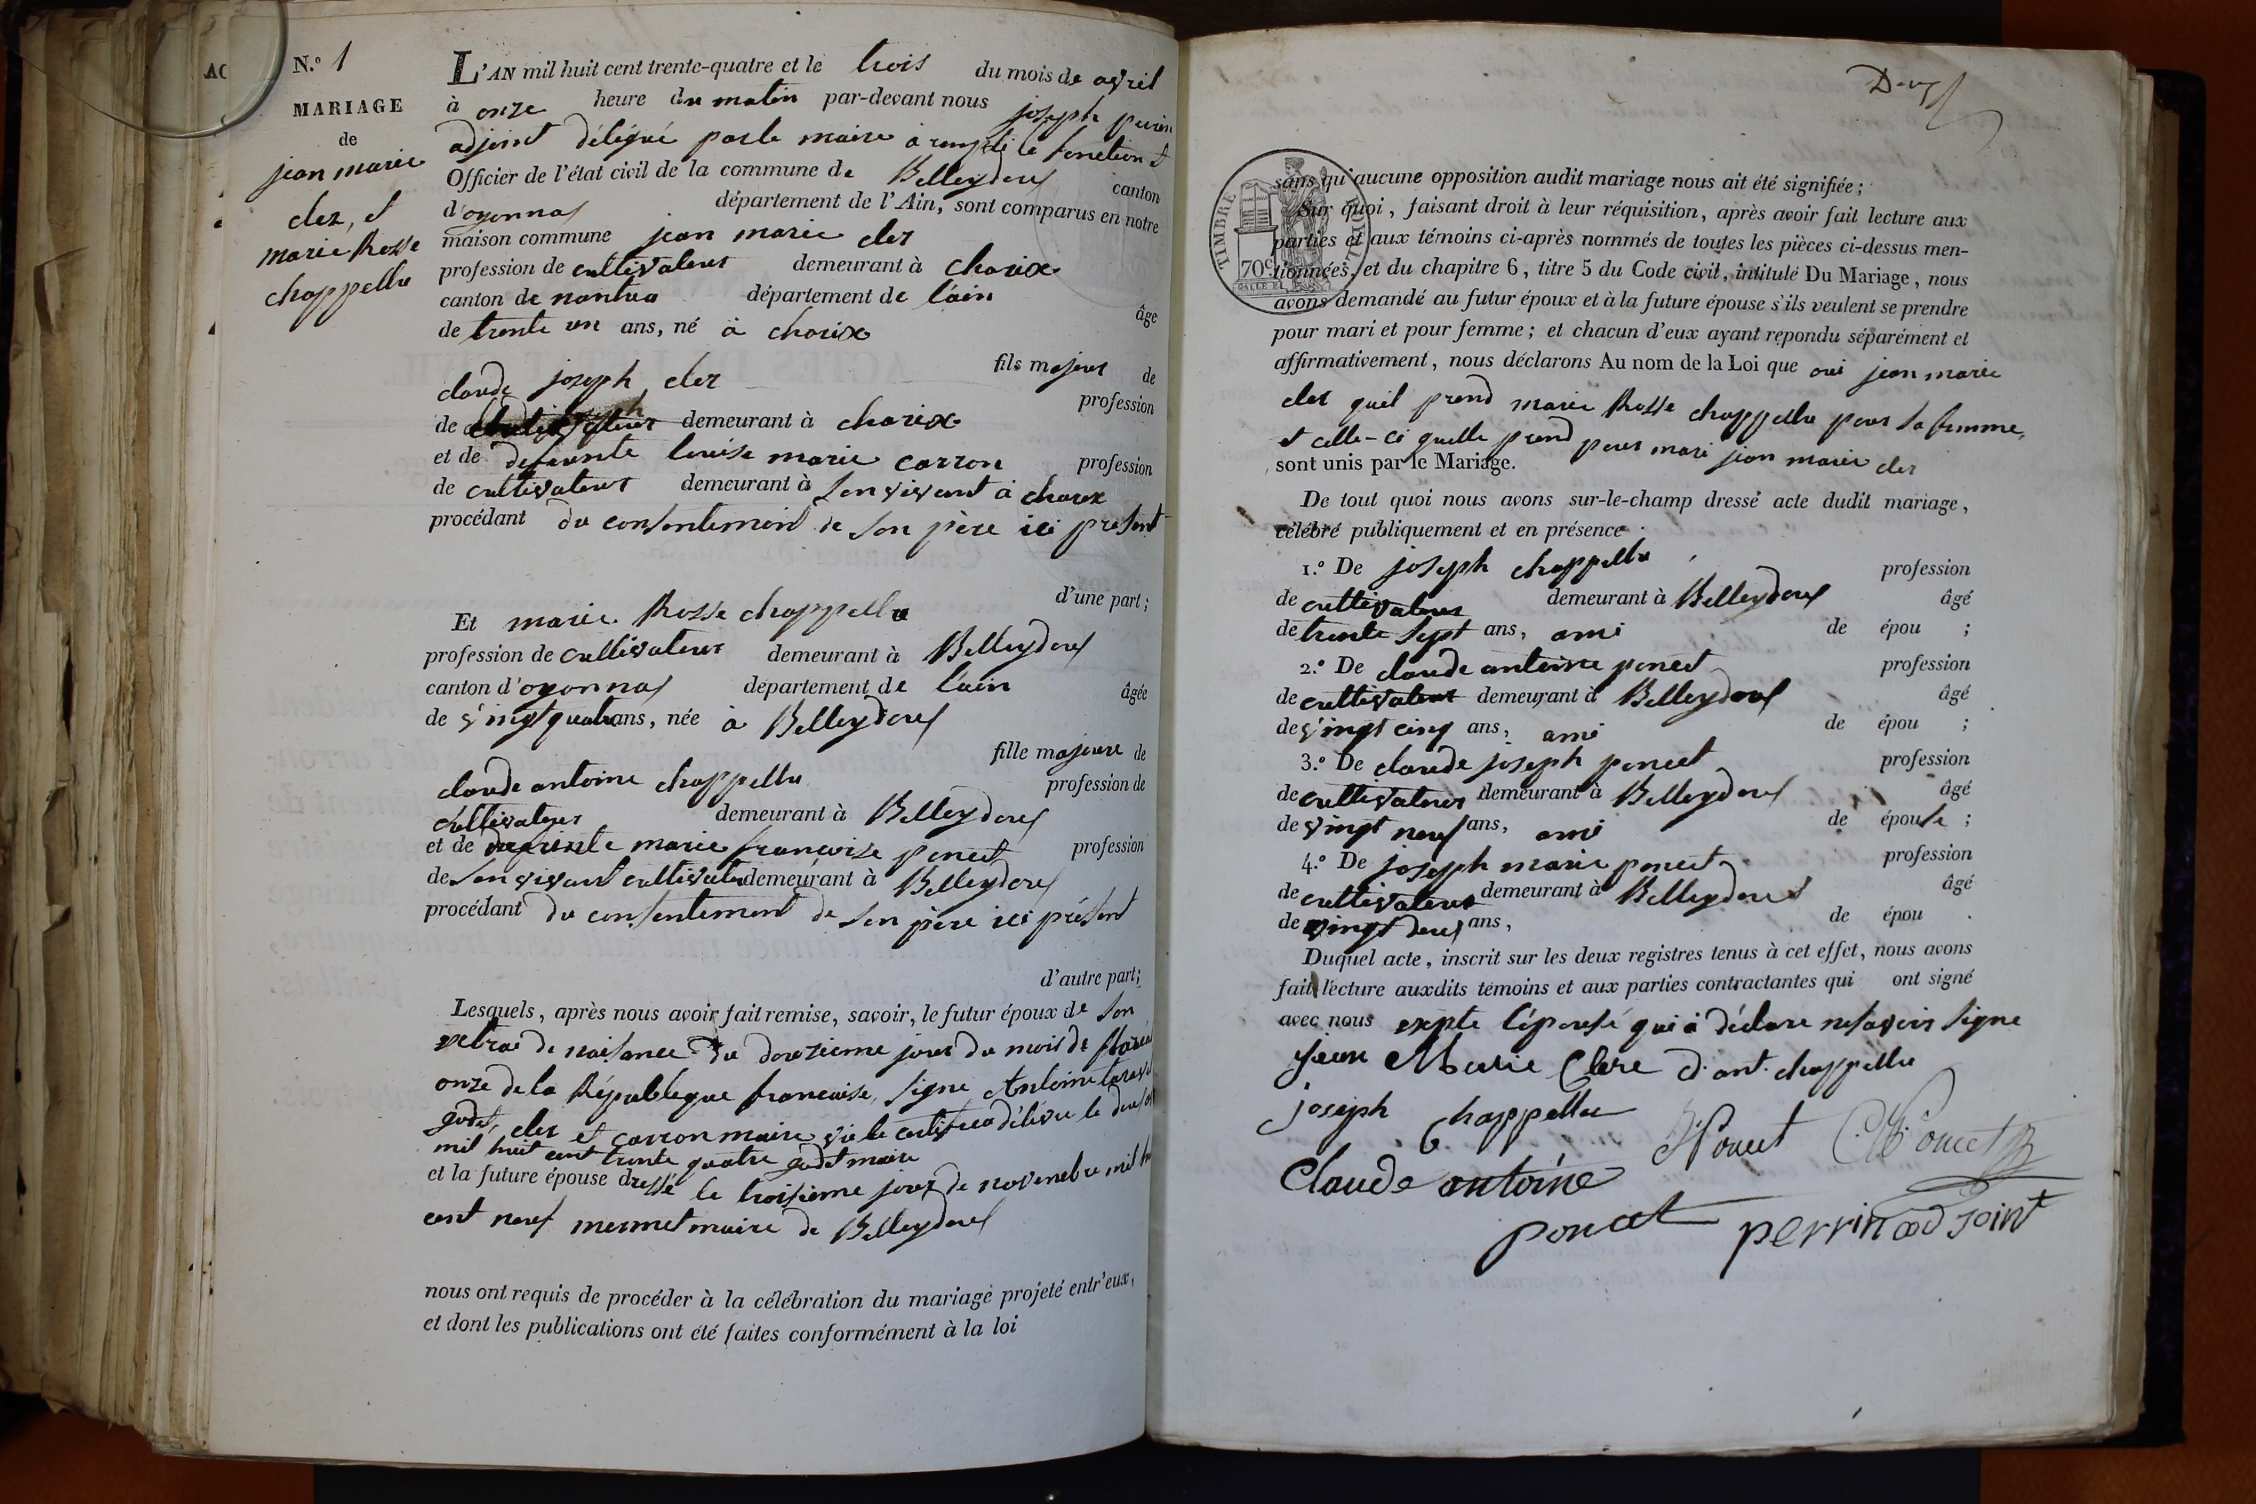 N.º 1
MARIAGE
de
jean marie
clez, et
marie Rosse
chappellu
L'AN mil huit cent trente-quatre et le trois du mois de avril
à onze heure du matin par-devant nous joseph perrin
adjoint délégué par le maire a rempli la fonction d
Officier de l'état civil de la commune de Belleydoux canton
d'oyonnax département de l'Ain, sont comparus en notre
maison commune jean marie clez
profession de cultivateur demeurant à charix
canton de nantua département de l'ain âge
de trente un ans, né à charix
fils majeur de
claude joseph clez profession
de demeurant à charix
et de defunte louise marie carron profession
de cultivateur demeurant à son vivant à charix
procédant du consentement de son père ici présent
d'une part;
Et marie Rosse chappellu
profession de cultivateur demeurant à Belleydoux
canton d'oyonnax département de l'ain âgée
de vingt quatre ans, née à Belleydoux
fille majeure de
claude antoine chappellu profession de
cultivateur demeurant à Belleydoux
et de defunte marie francoise poncet profession
de son vivant cultivateur demeurant à Belleydoux
procédant du consentement de son père ici présent
d'autre part;
Lesquels, après nous avoir fait remise, savoir, le futur époux de son
extrae de naisance du douzieme jour du mois de floréal
onze de la République francaise, signe Antoine
godet, clez et carron maire, vu le certificat délivre le
mil huit cent trente quatre godet maire
et la future épouse dressé le troisieme jour de novembre mil
cent neuf mermet maire de Belleydoux
nous ont requis de procéder à la célébration du mariage projeté entr'eux,
et dont les publications ont été faites conformément à la loi
Deux
TIMBRE ROYAL
70c
sans qu'aucune opposition audit mariage nous ait été signifiée;
Sur quoi, faisant droit à leur réquisition, après avoir fait lecture aux
parties et aux témoins ci-après nommés de toutes les pièces ci-dessus men-
tionnées, et du chapitre 6, titre 5 du Code civil, intitulé Du Mariage, nous
avons demandé au futur époux et à la future épouse s'ils veulent se prendre
pour mari et pour femme; et chacun d'eux ayant répondu séparément et
affirmativement, nous déclarons Au nom de la Loi que oui jean marie
clez quil prend marie Rosse chappellu pour sa femme,
et celle-ci quelle prend pour mari jean marie clez
sont unis par le Mariage.
De tout quoi nous avons sur-le-champ dressé acte dudit mariage,
célébré publiquement et en présence
1.º De joseph chappellu profession
de cultivateur demeurant à Belleydoux âgé
de trente sept ans, ami de épou ;
2.º De claude antoine poncet profession
de cultivateur demeurant à Belleydoux âgé
de vingt cinq ans, ami de épou ;
3.º De claude joseph poncet profession
de cultivateur demeurant à Belleydoux âgé
de vingt neuf ans, ami de épouse ;
4.º De joseph marie poncet profession
de cultivateur demeurant à Belleydoux âgé
de vingt deux ans, de épou .
Duquel acte, inscrit sur les deux registres tenus à cet effet, nous avons
fait lecture auxdits témoins et aux parties contractantes qui ont signé
avec nous exepte l'épouse qui a déclare ne savoir signe
jean Marie Clere C. ant. chappellu
joseph Chappellu
Poncet Poncet
Claude antoine
poncet perrin adjoint